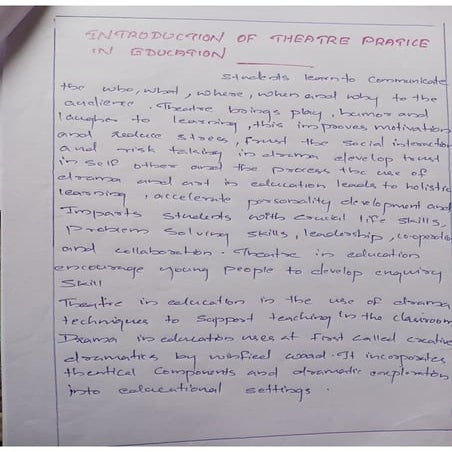 INTRODUCTION OF THEATRE PRATICE
IN EDUCATION
Students learn to communicate
the who, what, where, when and why to the
audience. Theatre brings play, humor and
laugher to learning, this improves motivation
and reduce stress, trust the social interaction
and risk taking in drama develop trust
in self other and the process the use of
drama and art in education leads to holistic
learning, accelerate personality development and
Imparts students with crucial life skills,
Problem solving skills, leadership, cooperatio
and collaboration. Theatre in education
encourage young people to develop enquiry
skill
Theatre in education in the use of drama
techniques to support teaching in the classroom
Drama in education uses at first called creative
dramatics by winfied ward. It incorporates
thentical components and dramatic exploration
into educational settings.